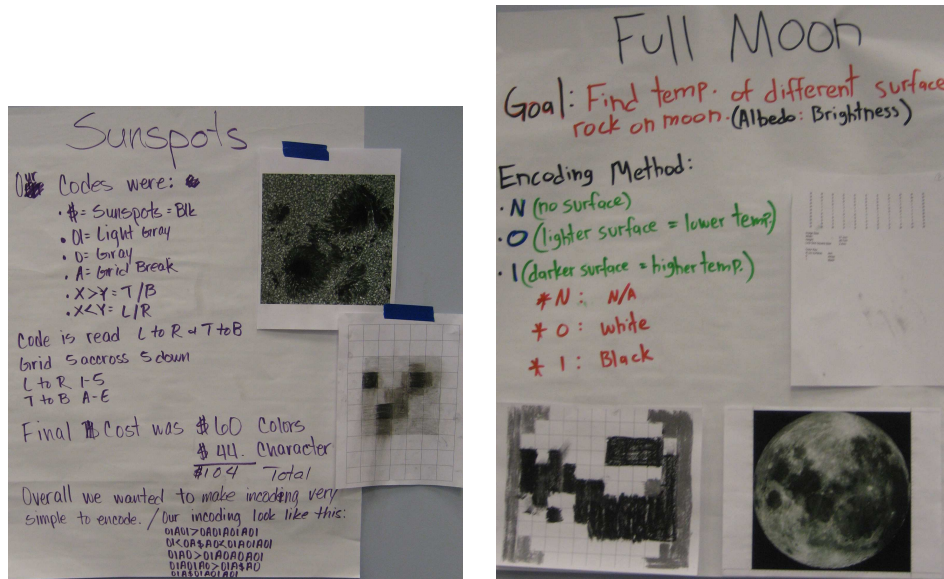 Sunspots
Our Codes were:
• $ = Sunspots = Blk
• 01 = Light Gray
• 0 = Gray
• A = Grid Break
• X>Y = T/B
• X<Y = L/R
Code is read L to R & T to B
Grid 5 accross 5 down
L to R 1-5
T to B A-E
Final Cost was $60 Colors
$44. Character
$104 Total
Overall we wanted to make incoding very
simple to encode. / Our incoding look like this:
01A01>0A01A01A01
01<0A$A0<01A01A01
01A0>01A0A0A01
01A01A0>01A$A0
01A$01A01A01
Full Moon
Goal: Find temp. of different surface
rock on moon. (Albedo: Brightness)
Encoding Method:
• N (no surface)
• O (lighter surface = lower temp.)
• 1 (darker surface = higher temp.)
* N : N/A
* O : white
* 1 : Black